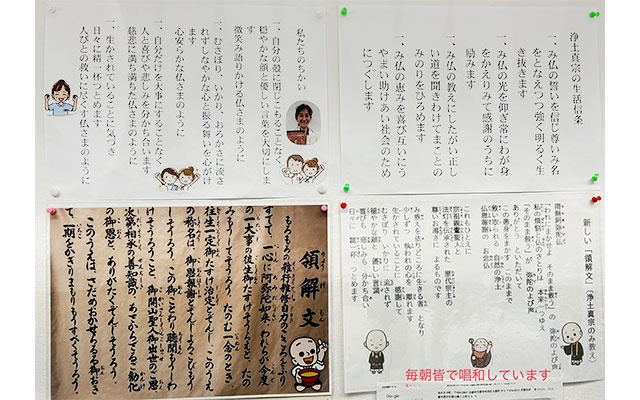 浄土真宗の生活信条
一、み仏の誓いを信じ尊いみ名
をとなえつつ強く明るく生
き抜きます
一、み仏の光を仰ぎ常にわが身
をかえりみて感謝のうちに
励みます
一、み仏の教えにしたがい正し
い道を聞きわけてまことの
みのりをひろめます
一、み仏の恵みを喜び互いにう
やまい助けあい社会のため
につくします
私たちのちかい
一、自分の殻に閉じこもることなく
穏やかな顔と優しい言葉を大切にしま
す
微笑み語りかける仏さまのように
一、むさぼり、いかり、おろかさに流さ
れずしなやかな心と振る舞いを心がけ
ます
心安らかな仏さまのように
一、自分だけを大事にすることなく
人と喜びや悲しみを分かち合います
慈悲に満ち満ちた仏さまのように
一、生かされていることに気づき
日々に精一杯つとめます
人びとの救いに尽くす仏さまのように
新しい「領解文」(浄土真宗のみ教え)
南無阿弥陀仏
「われにまかせよ そのまま救う」の 弥陀のよび声
私の煩悩と仏のさとりは 本来一つゆえ
「そのまま救う」が 弥陀のよび声
ありがとう といただいて
この愚身をまかす このままで
救い取られる 自然の浄土
仏恩報謝の お念仏
これもひとえに
宗祖親鸞聖人と
法灯を伝承された 歴代宗主の
尊いお導きに よるものです
み教えを依りどころに生きる者 となり
少しずつ 執われの心を 離れます
生かされていることに 感謝して
むさぼり いかりに 流されず
穏やかな顔と 優しい言葉
喜びも 悲しみも 分かち合い
日々に 精一杯 つとめます
領解文
もろもろの雑行雑修自力のこころをふり
すてて、一心に阿弥陀如来、われらが今度
の一大事の後生、御たすけ候へとたの
みまうして
往生一定御たすけ治定とぞんじ、このうえ
の称名は、御恩報謝と
この御ことわり聴聞まうしわ
御開山聖人御出世の御恩
次第相承の善知識の、あさからざる御勧化
の御恩と、ありがたく
このうえは、さだめおかせらるる御おきて
一期をかぎりまもりまうすべく
毎朝皆で唱和しています
Google